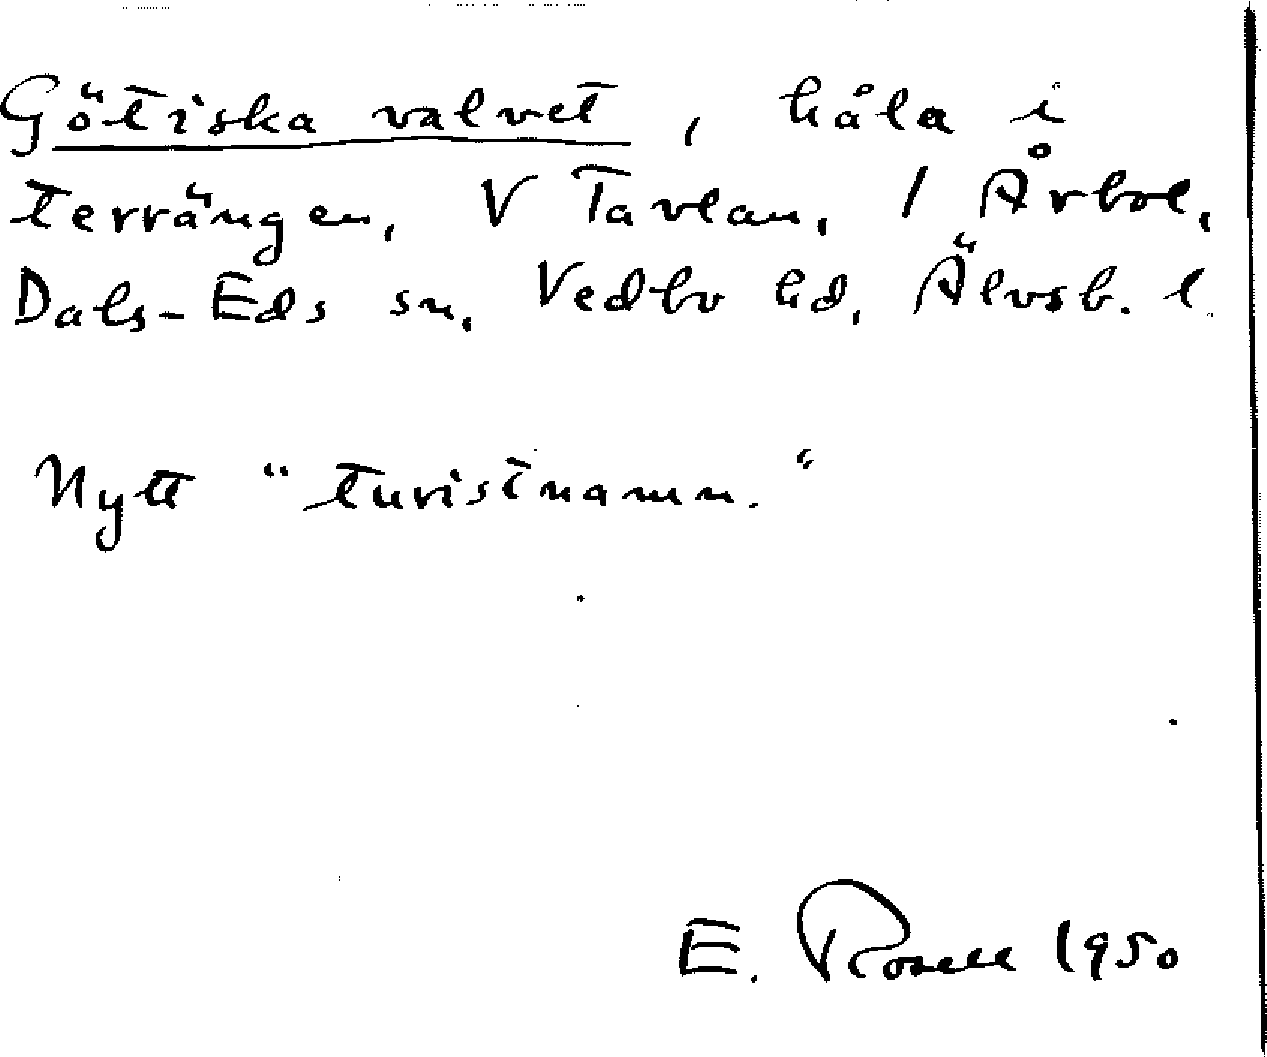 Götiska valvet, håla i
terrängen, V Tavlan, 1 Årbol,
Dals-Eds sn, Vedbo hd, Älvsb. l.
Nytt "turistnamn."
E. Rosell 1950